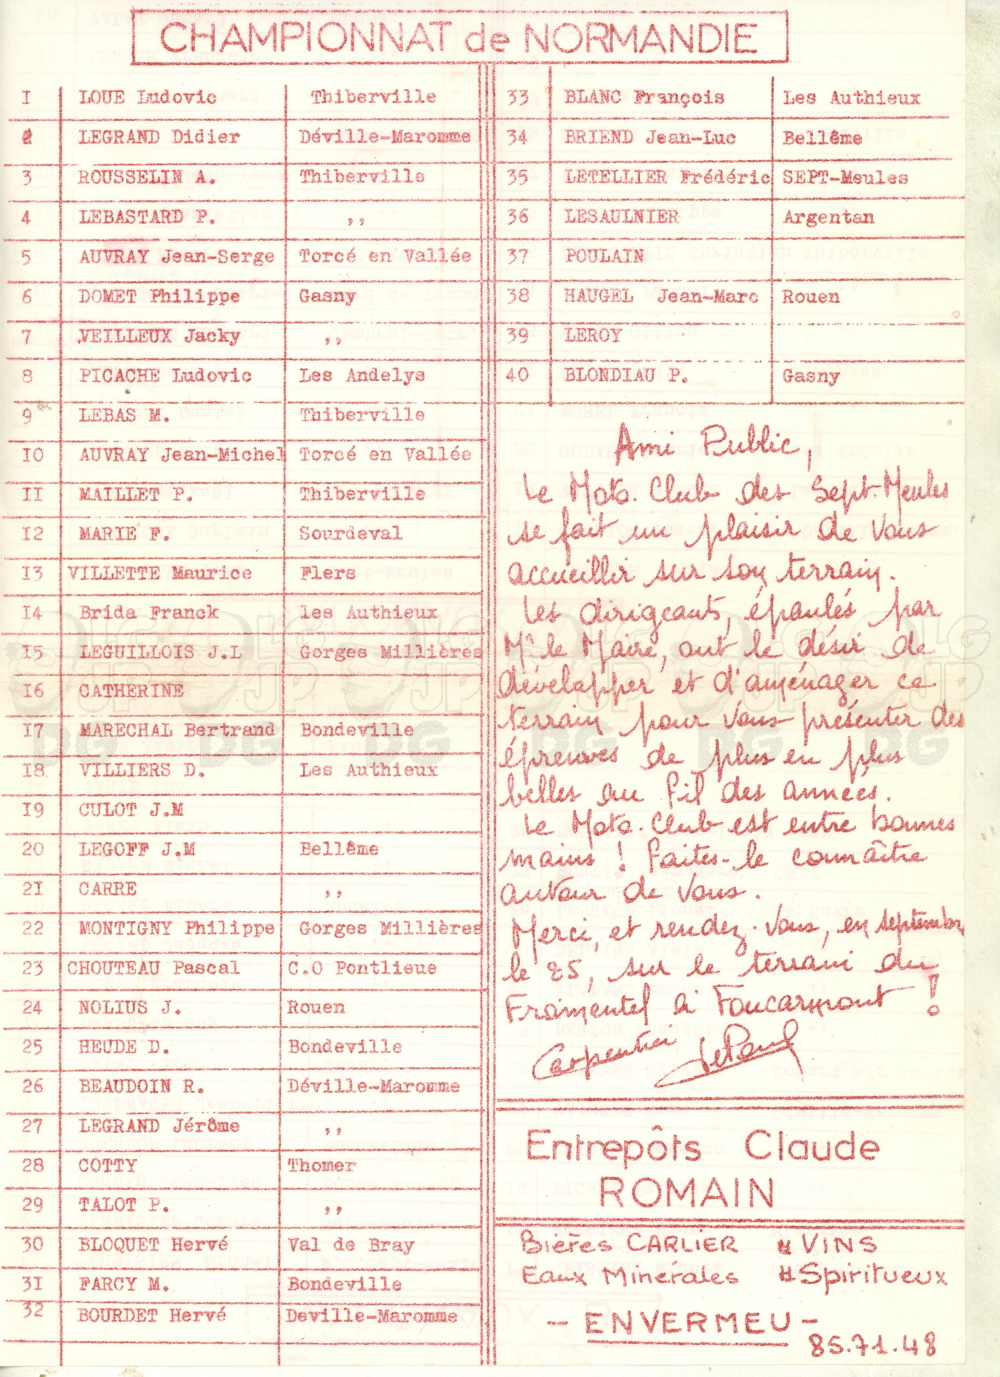 CHAMPIONNAT de NORMANDIE
I LOUE Ludovic Thiberville
2 LEGRAND Didier Déville-Maromme
3 ROUSSELIN A. Thiberville
4 LEBASTARD P. ,,
5 AUVRAY Jean-Serge Torcé en Vallée
6 DOMET Philippe Gasny
7 VEILLEUX Jacky ,,
8 PICACHE Ludovic Les Andelys
9 LEBAS M. Thiberville
IO AUVRAY Jean-Michel Torcé en Vallée
II MAILLET P. Thiberville
I2 MARIE F. Sourdeval
I3 VILLETTE Maurice Flers
I4 Brida Franck les Authieux
I5 LEGUILLOIS J.L Gorges Millières
I6 CATHERINE
I7 MARECHAL Bertrand Bondeville
I8 VILLIERS D. Les Authieux
I9 CULOT J.M
20 LEGOFF J.M Bellême
2I CARRE ,,
22 MONTIGNY Philippe Gorges Millières
23 CHOUTEAU Pascal C.O Pontlieue
24 NOLIUS J. Rouen
25 HEUDE D. Bondeville
26 BEAUDOIN R. Déville-Maromme
27 LEGRAND Jérôme ,,
28 COTTY Thomer
29 TALOT P. ,,
30 BLOQUET Hervé Val de Bray
3I FARCY M. Bondeville
32 BOURDET Hervé Deville-Maromme
33 BLANC François Les Authieux
34 BRIEND Jean-Luc Bellême
35 LETELLIER Frédéric SEPT-Meules
36 LESAULNIER Argentan
37 POULAIN
38 HAUGEL Jean-Marc Rouen
39 LEROY
40 BLONDIAU P. Gasny
Ami Public,
Le Moto-Club des Sept-Meules
se fait un plaisir de vous
accueillir sur son terrain.
Les dirigeants, épaulés par
Mr le Maire, ont le désir de
développer et d'aménager ce
terrain pour vous présenter des
épreuves de plus en plus
belles au fil des années.
Le Moto-Club est entre bonnes
mains ! Faites-le connaître
autour de vous.
Merci, et rendez-vous, en septembre,
le 25, sur le terrain du
Fromentel à Foucarmont !
Carpentier LePaul
Entrepôts Claude
ROMAIN
Bières CARLIER # VINS
Eaux Minérales # Spiritueux
- ENVERMEU -
85.71.48
LG
JP
DG